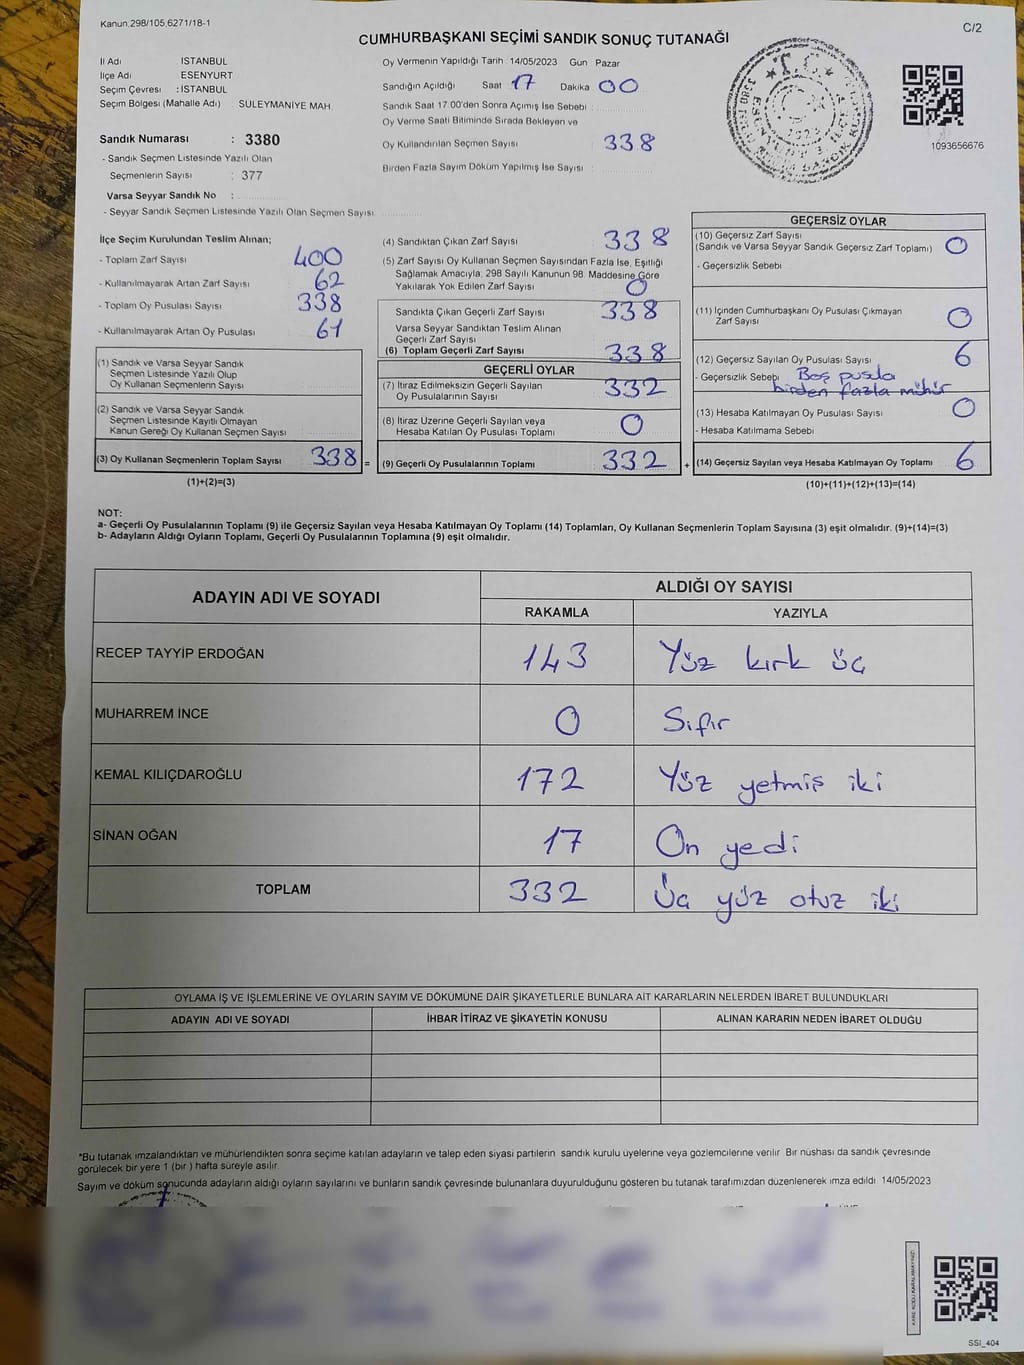 Kanun.298/105,6271/18-1
C/2
CUMHURBAŞKANI SEÇİMİ SANDIK SONUÇ TUTANAĞI
İl Adı İSTANBUL
İlçe Adı ESENYURT
Seçim Çevresi : İSTANBUL
Seçim Bölgesi (Mahalle Adı) : SULEYMANIYE MAH.
Sandık Numarası : 3380
- Sandık Seçmen Listesinde Yazılı Olan
Seçmenlerin Sayısı : 377
Varsa Seyyar Sandık No :
- Seyyar Sandık Seçmen Listesinde Yazılı Olan Seçmen Sayısı
Oy Vermenin Yapıldığı Tarih 14/05/2023 Gün Pazar
Sandığın Açıldığı Saat 17 Dakika 00
Sandık Saat 17.00'den Sonra Açımış İse Sebebi
Oy Verme Saati Bitiminde Sırada Bekleyen ve
Oy Kullandırılan Seçmen Sayısı 338
Birden Fazla Sayım Döküm Yapılmış İse Sayısı
T.C.
1093656676
İlçe Seçim Kurulundan Teslim Alınan;
- Toplam Zarf Sayısı 400
- Kullanılmayarak Artan Zarf Sayısı 62
- Toplam Oy Pusulası Sayısı 338
- Kullanılmayarak Artan Oy Pusulası 61
(1) Sandık ve Varsa Seyyar Sandık
Seçmen Listesinde Yazılı Olup
Oy Kullanan Seçmenlerin Sayısı
(2) Sandık ve Varsa Seyyar Sandık
Seçmen Listesinde Kayıtlı Olmayan
Kanun Gereği Oy Kullanan Seçmen Sayısı
(3) Oy Kullanan Seçmenlerin Toplam Sayısı 338 =
(1)+(2)=(3)
(4) Sandıktan Çıkan Zarf Sayısı 338
(5) Zarf Sayısı Oy Kullanan Seçmen Sayısından Fazla İse, Eşitliği
Sağlamak Amacıyla, 298 Sayılı Kanunun 98. Maddesine Göre
Yakılarak Yok Edilen Zarf Sayısı 0
Sandıkta Çıkan Geçerli Zarf Sayısı 338
Varsa Seyyar Sandıktan Teslim Alınan
Geçerli Zarf Sayısı
(6) Toplam Geçerli Zarf Sayısı 338
GEÇERLİ OYLAR
(7) İtiraz Edilmeksizin Geçerli Sayılan
Oy Pusulalarının Sayısı 332
(8) İtiraz Üzerine Geçerli Sayılan veya
Hesaba Katılan Oy Pusulası Toplamı 0
(9) Geçerli Oy Pusulalarının Toplamı 332 +
GEÇERSİZ OYLAR
(10) Geçersiz Zarf Sayısı
(Sandık ve Varsa Seyyar Sandık Geçersiz Zarf Toplamı) 0
- Geçersizlik Sebebi
(11) İçinden Cumhurbaşkanı Oy Pusulası Çıkmayan
Zarf Sayısı 0
(12) Geçersiz Sayılan Oy Pusulası Sayısı 6
- Geçersizlik Sebebi Boş pusula
birden fazla mühür
(13) Hesaba Katılmayan Oy Pusulası Sayısı 0
- Hesaba Katılmama Sebebi
(14) Geçersiz Sayılan veya Hesaba Katılmayan Oy Toplamı 6
(10)+(11)+(12)+(13)=(14)
NOT:
a- Geçerli Oy Pusulalarının Toplamı (9) ile Geçersiz Sayılan veya Hesaba Katılmayan Oy Toplamı (14) Toplamları, Oy Kullanan Seçmenlerin Toplam Sayısına (3) eşit olmalıdır. (9)+(14)=(3)
b- Adayların Aldığı Oyların Toplamı, Geçerli Oy Pusulalarının Toplamına (9) eşit olmalıdır.
ADAYIN ADI VE SOYADI ALDIĞI OY SAYISI
RAKAMLA YAZIYLA
RECEP TAYYİP ERDOĞAN 143 Yüz kırk üç
MUHARREM İNCE 0 Sıfır
KEMAL KILIÇDAROĞLU 172 Yüz yetmiş iki
SİNAN OĞAN 17 On yedi
TOPLAM 332 Üç yüz otuz iki
OYLAMA İŞ VE İŞLEMLERİNE VE OYLARIN SAYIM VE DÖKÜMÜNE DAİR ŞİKAYETLERLE BUNLARA AİT KARARLARIN NELERDEN İBARET BULUNDUKLARI
ADAYIN ADI VE SOYADI İHBAR İTİRAZ VE ŞİKAYETİN KONUSU ALINAN KARARIN NEDEN İBARET OLDUĞU
*Bu tutanak imzalandıktan ve mühürlendikten sonra seçime katılan adayların ve talep eden siyasi partilerin sandık kurulu üyelerine veya gözlemcilerine verilir. Bir nüshası da sandık çevresinde
görülecek bir yere 1 (bir ) hafta süreyle asılır.
Sayım ve döküm sonucunda adayların aldığı oyların sayılarını ve bunların sandık çevresinde bulunanlara duyurulduğunu gösteren bu tutanak tarafımızdan düzenlenerek imza edildi 14/05/2023
KARE KODU KARALAMAYINIZ!
SSI_404